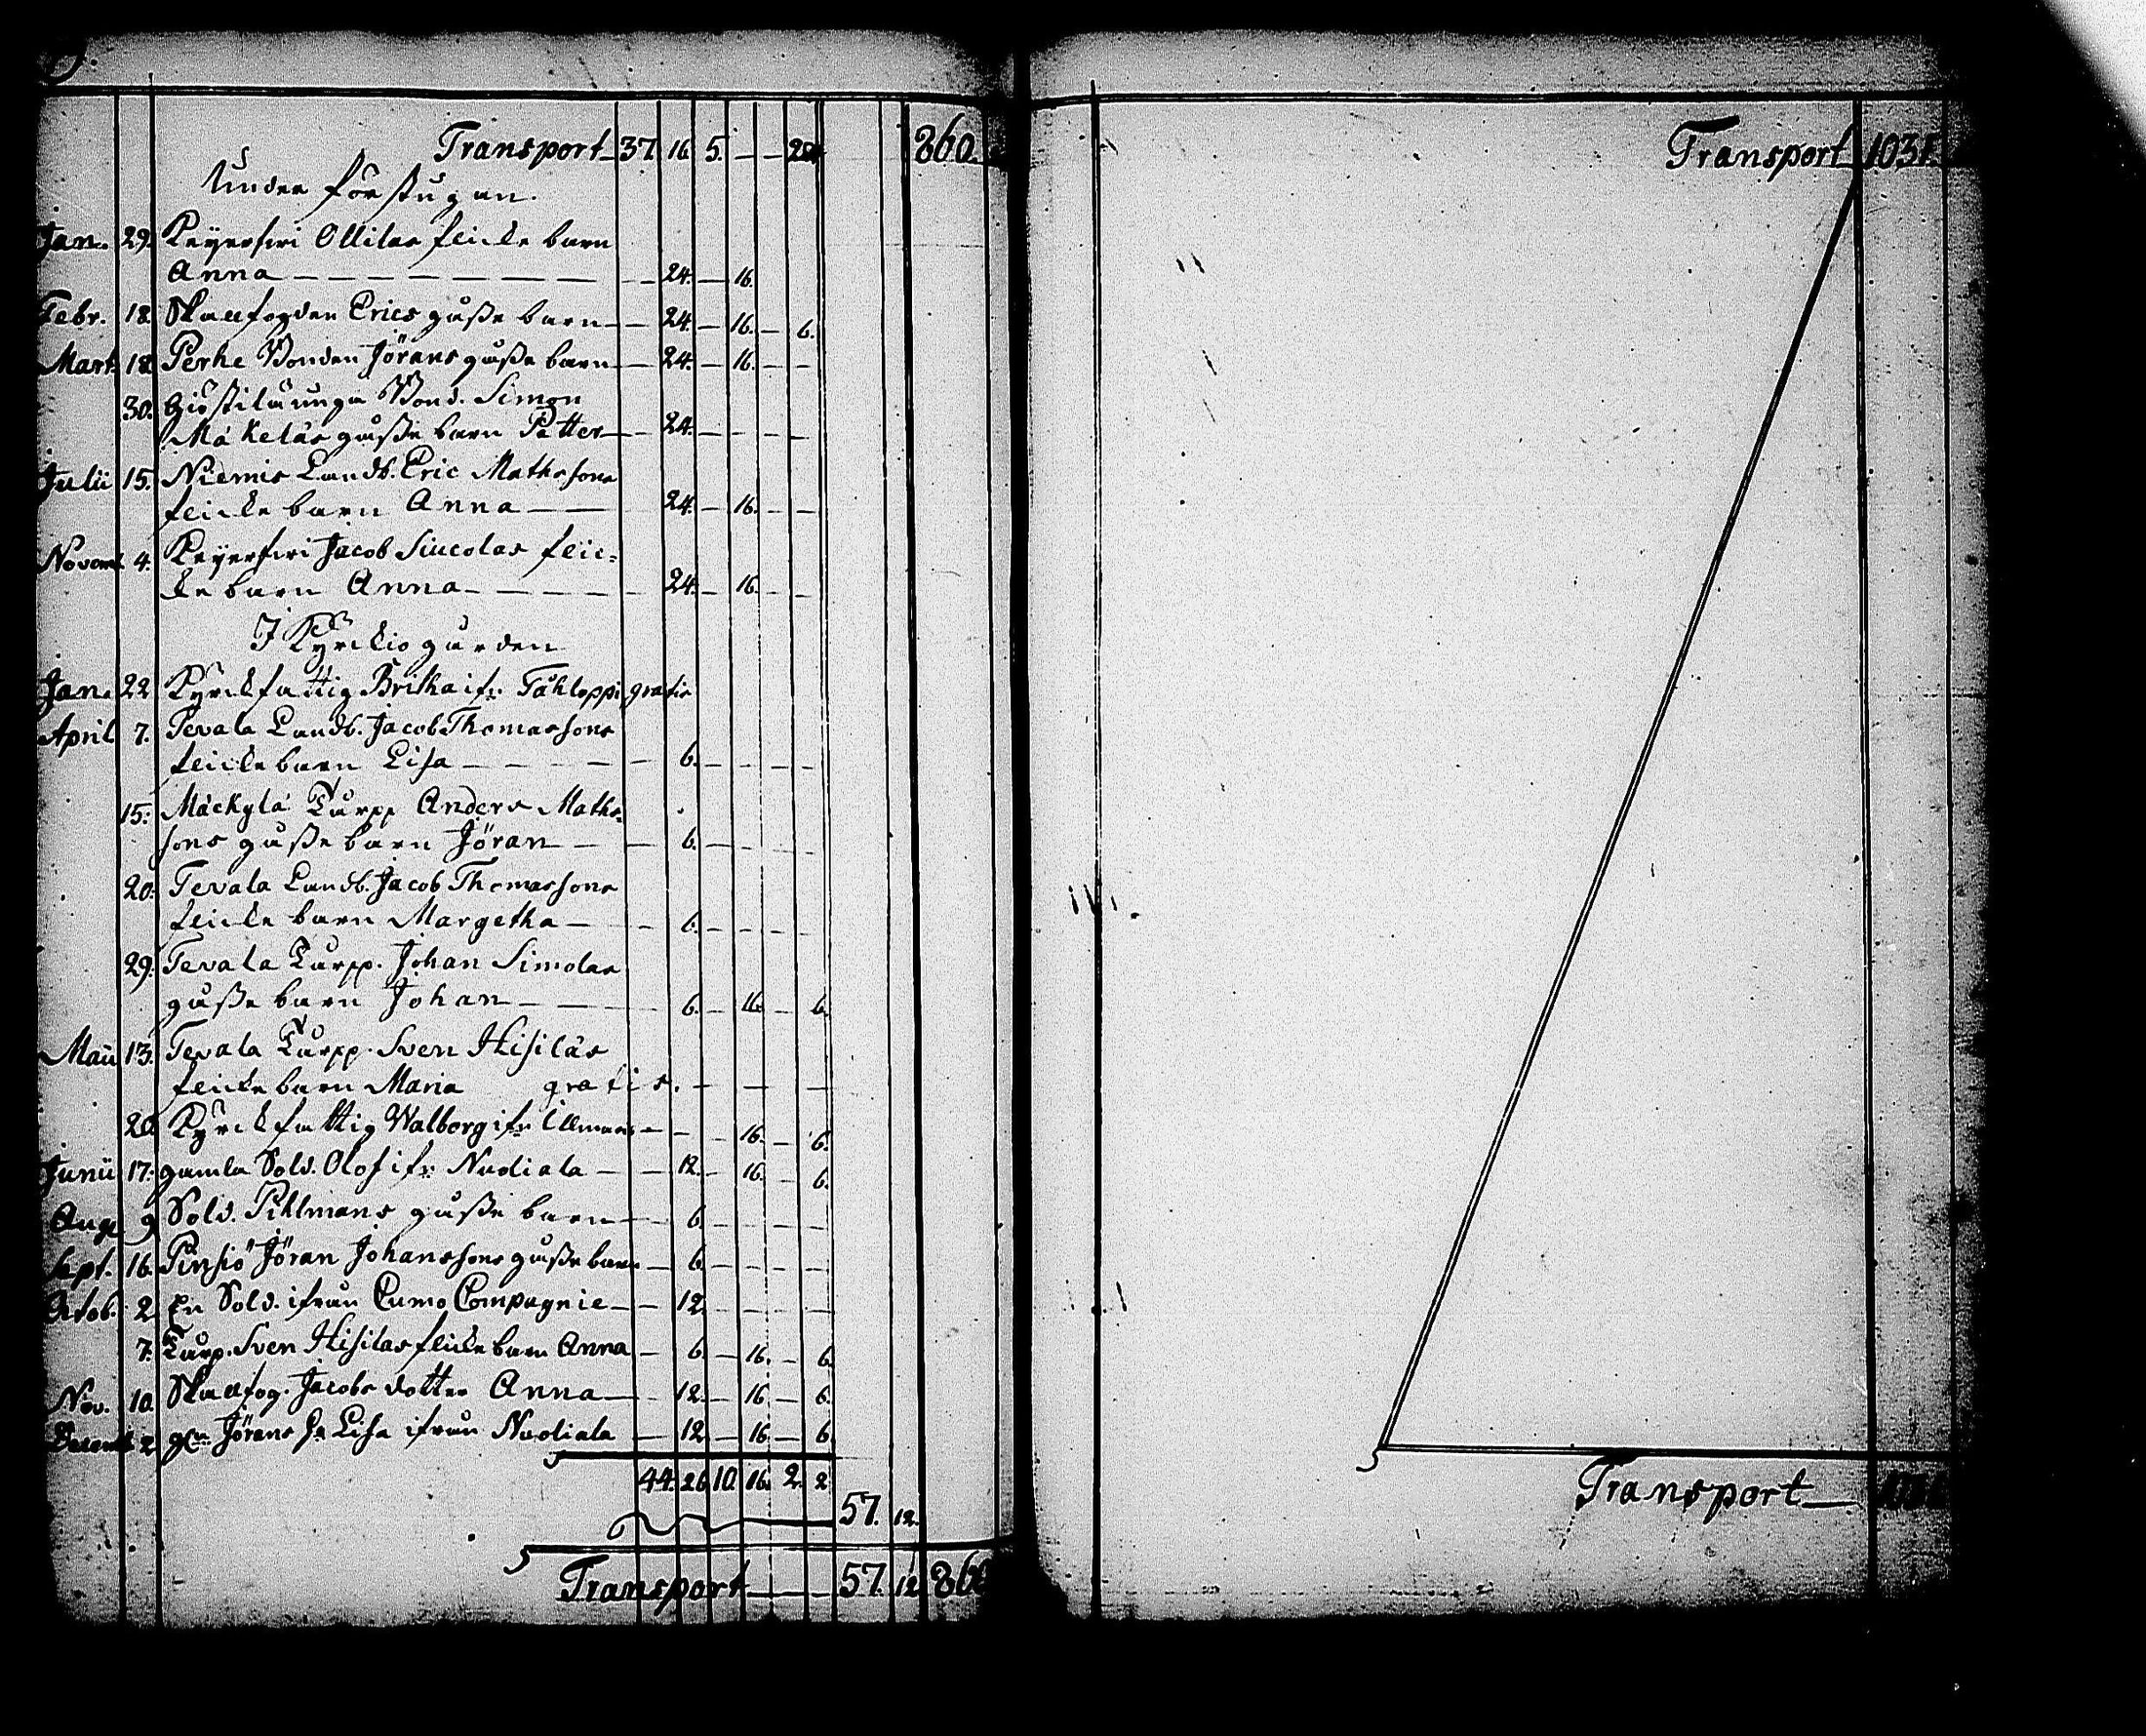 Transport 37. 16. 5. — — 860.
Under förstugan.
Jan. 29. Keyerfwi Ollilas flicke barn
Anna — — — — — — — — 24. — 16.
Febr. 18. Skallfogden Erics gåsse barn — — 24. — 16. — 6.
Mart. 18. Perhe Bonden Jörans gåsse barn — — 24. — 16. — —
30. Bond. Simon
Mäkeläs gåsse barn Petter — — 24. — — — —
Julii 15. Niemis Landb. Eric Mathssons
flicke barn Anna — — 24. — 16. — —
Novemb. 4. Keyerfwi Jacob Siucolas flic=
ke barn Anna — — — — — 24. — 16. — —
I Kyrckiogården
Jan. 22. Kyrckfattig Britha ifr. Tåhloppi gratis
April 7. Tevala Landb. Jacob Thomassons
flicke barn Lisa — — — — — 6. — — — —
15. Mäckylä Torpp Anders Maths=
sons gåsse barn Jöran — — 6. — — — —
20. Tevala Landb. Jacob Thomassons
flicke barn Margetha — — 6. — — — —
29. Tevala Torpp. Johan Simolas
gåsse barn Johan — — — 6. — 16. — 6.
Maii 13. Tevala Torpp. Sven Hisiläs
flicke barn Maria gratis. — — —
20. Kyrckfattig Walborg ifr. — — — 16. — 6.
Junii 17. gamla Sold. Olof ifr. Nuoliala — — 12. — 16. — 6.
Aug. 9. Sold. Pihlmans gåsse barn — — 6. — — — —
Sept. 16. Pinsiö Jöran Johanssons gåsse barn — 6. — — — —
Octob. 2. En Sold. ifrån Cumo Compagnie — — 12. — — — —
7. Torp. Sven Hisilas flicke barn Anna — 6. — 16. — 6.
Nov. 10. Skallfog. Jacobs dotter Anna — — 12. — 16. — 6.
Decemb. 2. Jörans Lisa ifrån Nuoliala — 12. — 16. — 6.
44. 26. 10. 16. 2. 2.
57. 12.
Transport — — — 57. 12. 860
Transport 1031.
Transport —